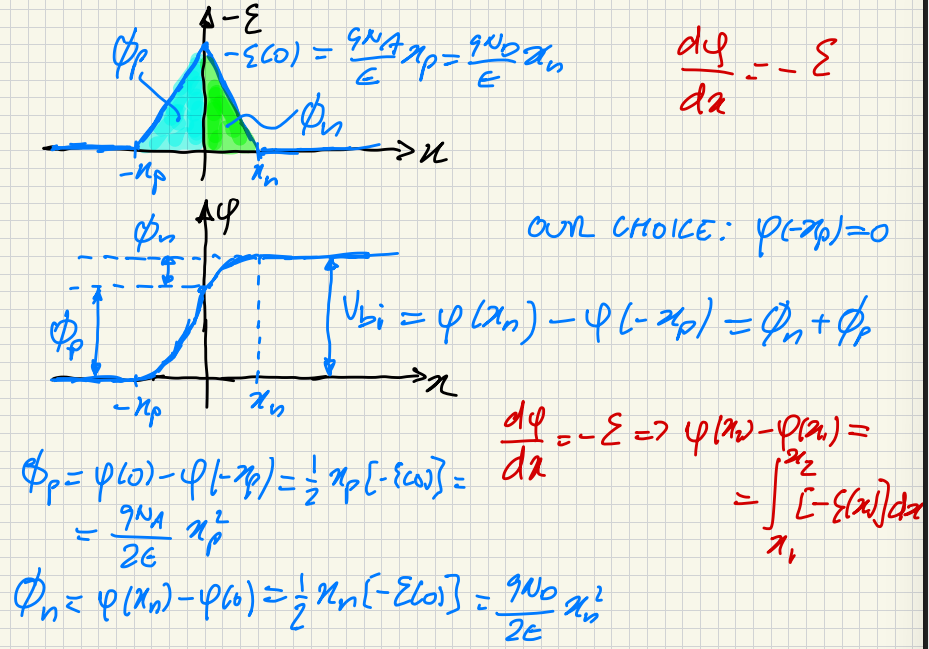 -ε
ϕp
-ε(0) = qN_A/ϵ x_p = qN_D/ϵ x_n
dφ/dx = -ε
ϕn
-x_p
x_n
x
φ
ϕn
OUR CHOICE: φ(-x_p)=0
ϕp
V_bi = φ(x_n) - φ(-x_p) = ϕn + ϕp
-x_p
x_n
x
dφ/dx = -ε => φ(x_2) - φ(x_1) =
= ∫_{x_1}^{x_2} [-ε(x)] dx
ϕp = φ(0) - φ(-x_p) = 1/2 x_p [-ε(0)] =
= qN_A/2ϵ x_p^2
ϕn = φ(x_n) - φ(0) = 1/2 x_n [-ε(0)] = qN_D/2ϵ x_n^2